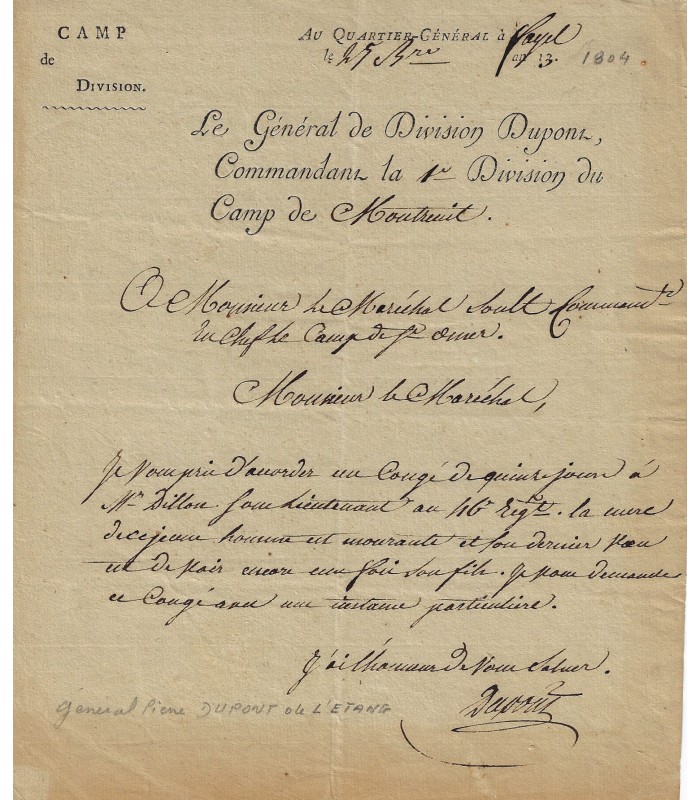 CAMP
de
DIVISION.
AU QUARTIER-GÉNÉRAL à fayel
le 25 Bre an 13. 1804.
Le Général de Division Dupont,
Commandant la 1re Division du
Camp de Montreuil.
A Monsieur le Maréchal Soult Commandt
En Chef le Camp de St omer.
Monsieur le Maréchal,
Je Vous prie d'accorder un Congé de quinze jours à
Mr Dillon Sous Lieutenant au 46e Régt. la mere
de ce jeune homme est mourante et son dernier vœu
est de voir encore une fois son fils. Je vous demande
ce Congé avec une instance particuliere.
J'ai l'honneur de Vous Saluer.
Dupont
général Pierre DUPONT de L'ETANG